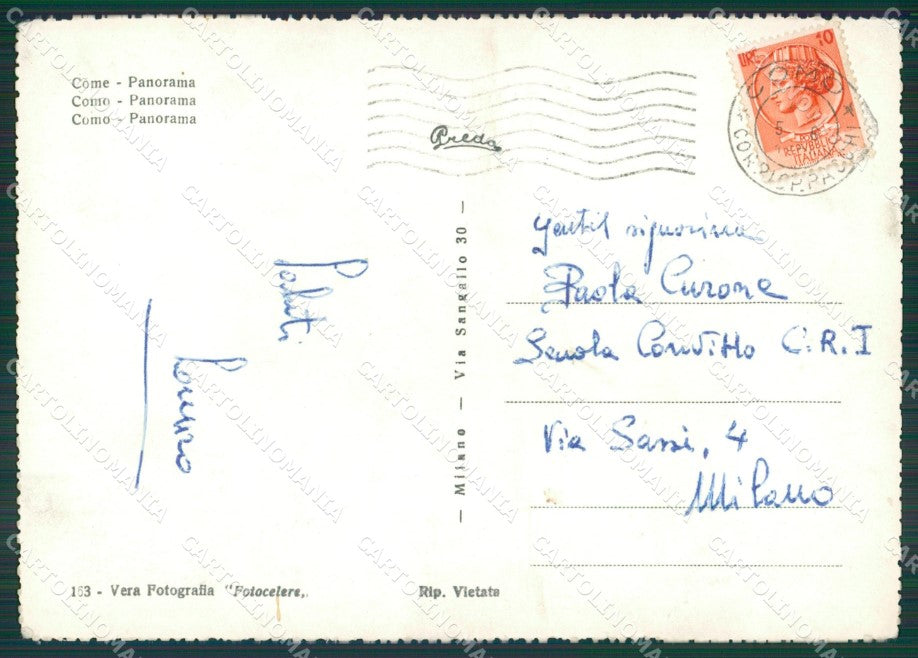 Come - Panorama
Como - Panorama
Como - Panorama
Preda
LIRE 10
REPVBBLICA
ITALIANA
CORRISP. PACCHI
Gentil signorina
Paola Curone
Scuola Convitto C.R.I
Via Sassi, 4
Milano
Saluti
Milano - Via Sangallo 30
163 - Vera Fotografia "Fotocelere,,
Rip. Vietata
CARTOLINOMANIA